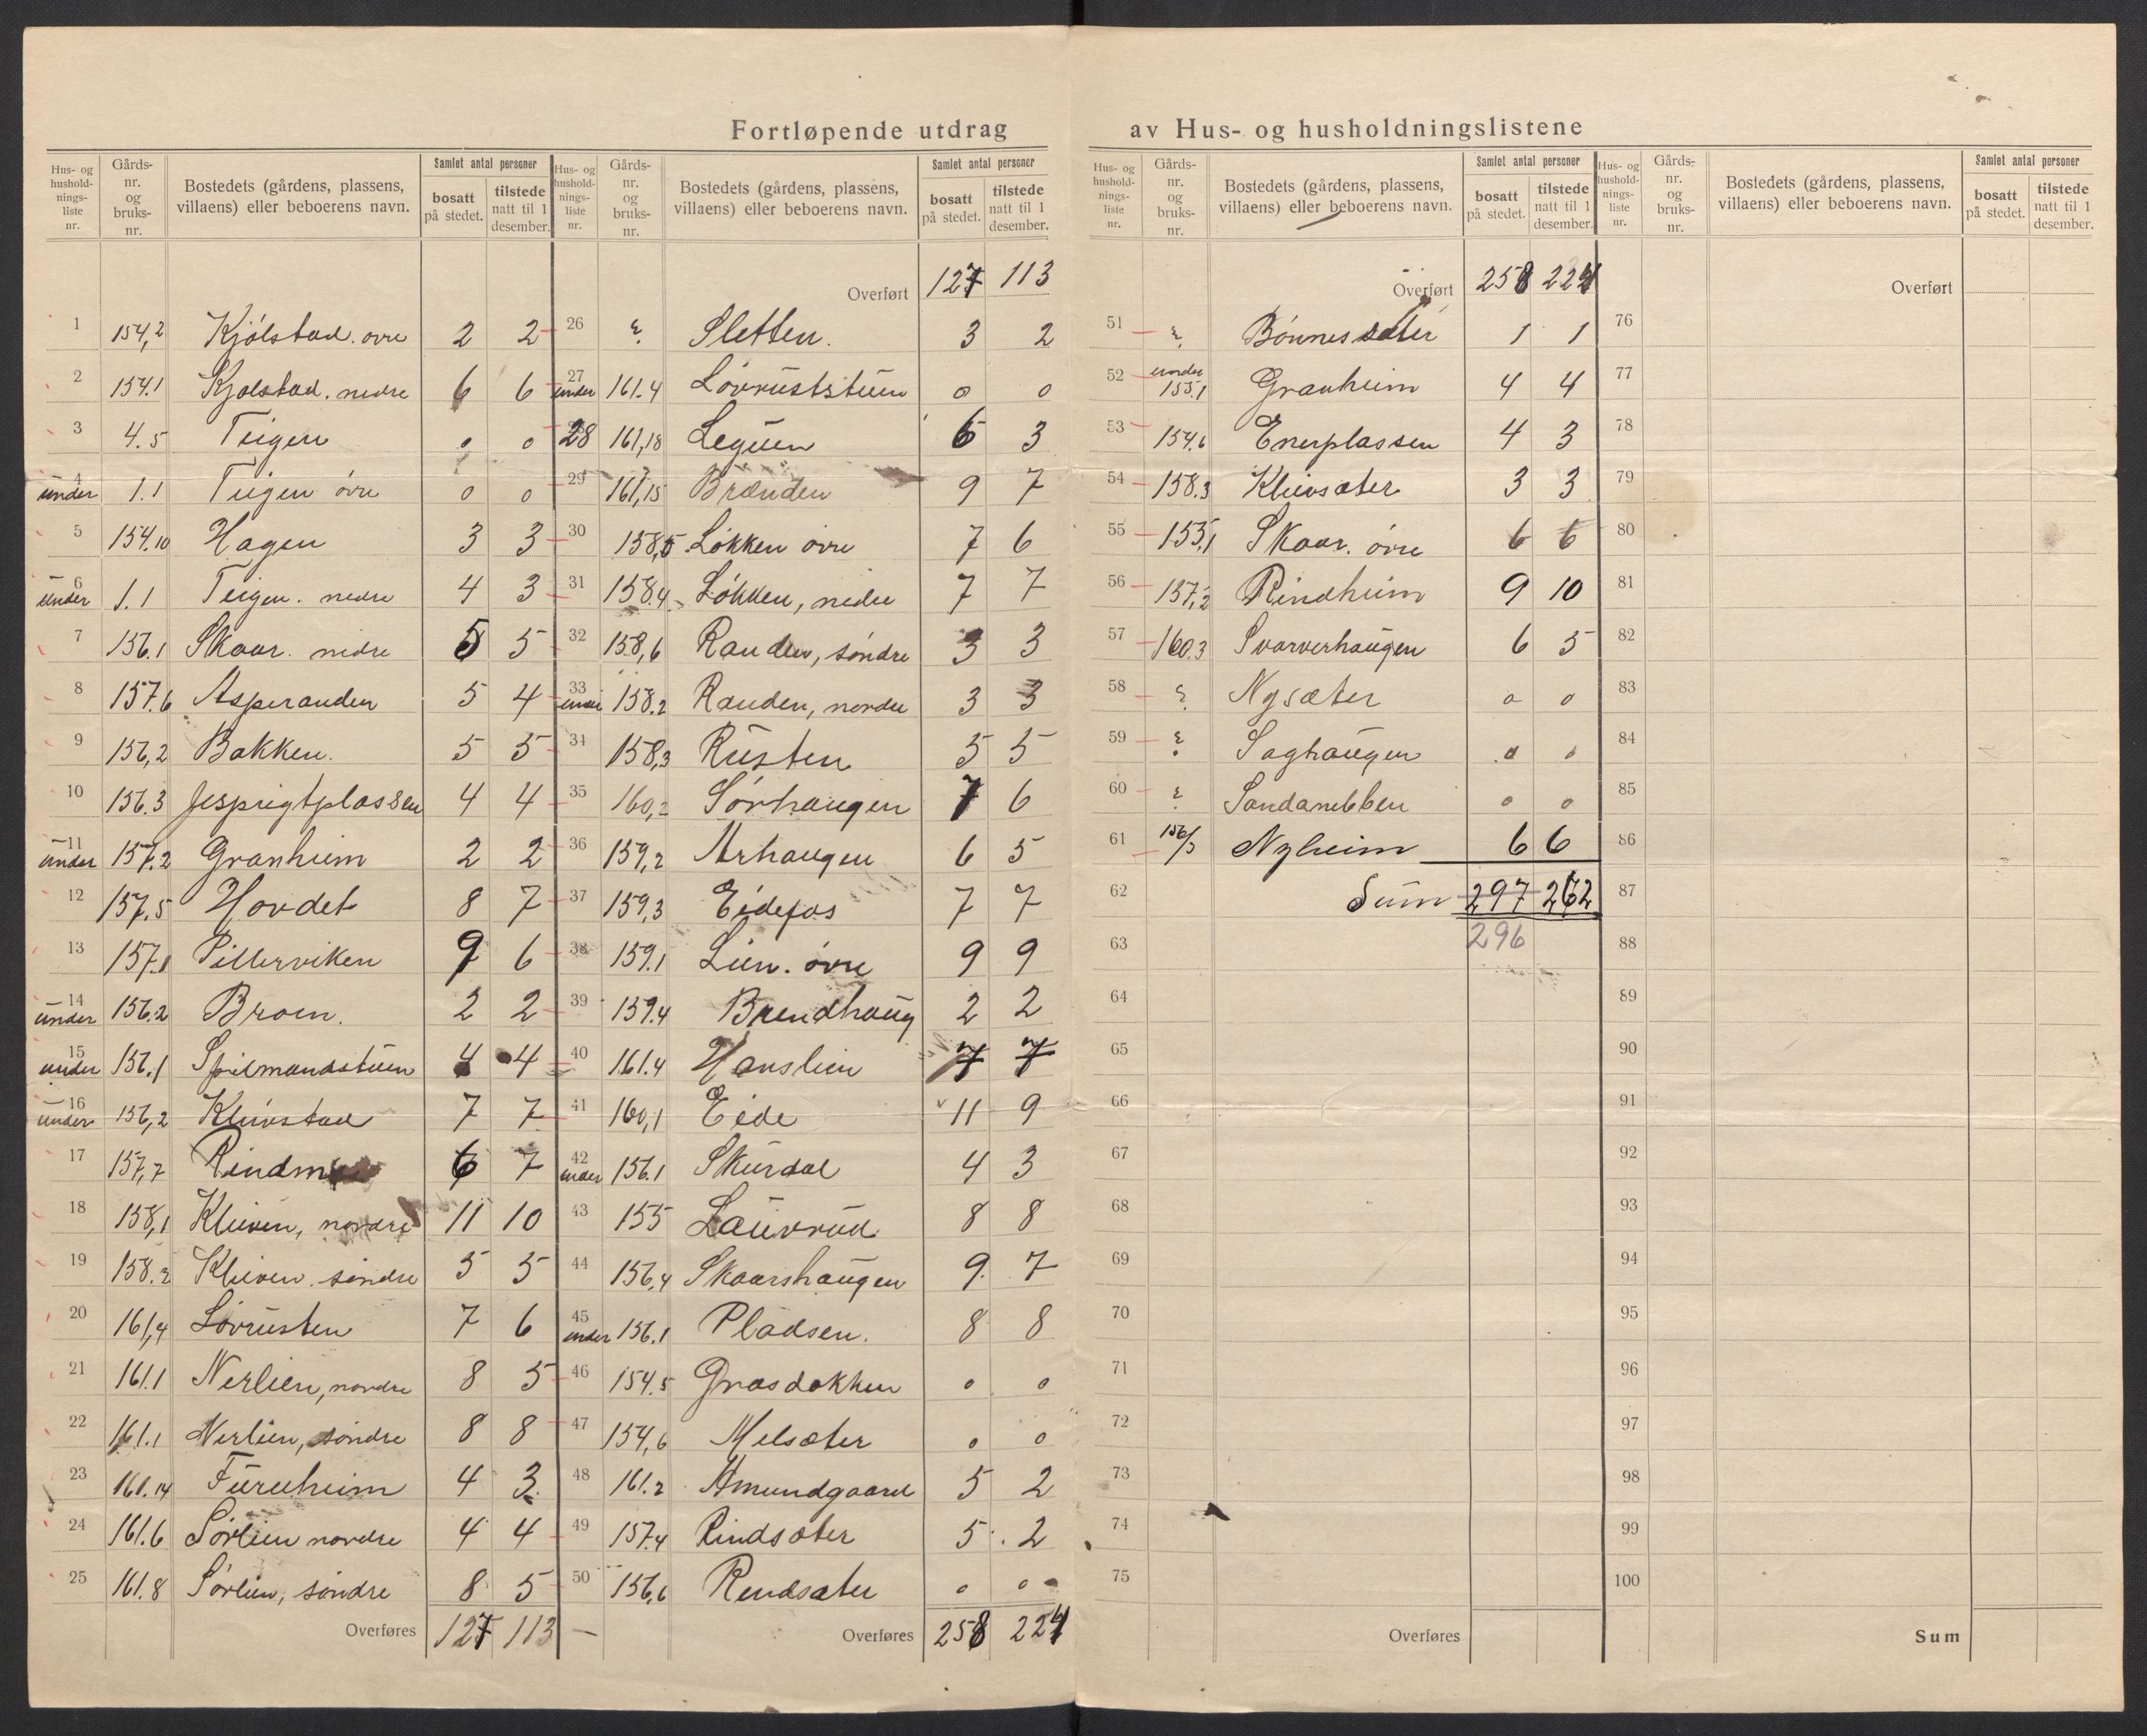 Fortløpende utdrag av Hus- og husholdningslistene
Hus- og hushold-nings-liste nr. | Gårds-nr. og bruks-nr. | Bostedets (gårdens, plassens, villaens) eller beboerens navn. | Samlet antal personer | bosatt på stedet. | tilstede natt til 1 desember.
1 154,2 Kjölstad. övre 2 2
2 154.1 Kjolstad. nedre 6 6
3 4.5 Teigen 0 0
4 under 1.1 Teigen övre 0 0
5 154.10 Hagen 3 3
6 under 1.1 Teigen. nedre 4 3
7 156.1 Skaar. nedre 5 5
8 157.6 Asperanden 5 4
9 156,2 Bakken. 5 5
10 156.3 Jesprigtplassen 4 4
11 under 157.2 Granheim 2 2
12 157.5 Hovdet 8 7
13 157.1 Pillerviken 9 6
14 under 156.2 Broen. 2 2
15 under 156.1 Spilmandstuen 4 4
16 under 156,2 Kleivstad 7 7
17 157,7 6 7
18 158,1 Kleiven, nordre 11 10
19 158.2 Kleiven. söndre 5 5
20 161,4 Lövrusten 7 6
21 161.1 Nerlien, nordre 8 5
22 161.1 Nerlien, söndre 8 8
23 161.14 Furuheim 4 3.
24 161.6 Sörlien nordre 4 4
25 161.8 Sörlien, söndre 8 5
Overføres 127 113
Hus- og hushold-nings-liste nr. | Gårds-nr. og bruks-nr. | Bostedets (gårdens, plassens, villaens) eller beboerens navn. | Samlet antal personer | bosatt på stedet. | tilstede natt til 1 desember.
Overført 127 113
26 ? Sletten. 3 2
27 under 161.4 Lövruststuen 0 0
28 161,18 Leguen 6 3
29 161,15 Brænden 9 7
30 158,5 Lökken övre 7 6
31 158.4 Lökken, nedre 7 7
32 158,6 Randen, söndre 3 3
33 under 158.2 Randen, nordre 3 3
34 158,3 Rusten 5 5
35 160,2 Sörhaugen 7 6
36 159,2 Arhaugen 6 5
37 159,3 Eidefos 7 7
38 159.1 Lien. övre 9 9
39 159.4 Brendhaug 2 2
40 161.4 Hanslien 7 7
41 160,1 Eide 11 9
42 under 156.1 Skurdal 4 3
43 155 Lauvrud 8 8
44 156,4 Skaarshaugen 9. 7
45 under 156.1 Pladsen. 8 8
46 154.5 Græsdokken 0 0
47 154,6 Melsæter 0 0
48 161.2 Amundgaard 5 2
49 157.4 Rindsæter 5 2
50 156,6 Rendsæter 0 0
Overføres 258 224
Hus- og hushold-nings-liste nr. | Gårds-nr. og bruks-nr. | Bostedets (gårdens, plassens, villaens) eller beboerens navn. | Samlet antal personer | bosatt på stedet. | tilstede natt til 1 desember.
Overført 258 224
51 ? Bönnessæter 1 1
52 under 155.1 Granheim 4 4
53 154.6 Enerplassen 4 3
54 158.3 Kleivsæter 3 3
55 155,1 Skaar. övre 6 6
56 157,2 Rindheim 9 10
57 160.3 Svarverhaugen 6 5
58 ? Nysæter 0 0
59 ? Saghaugen 0 0
60 ? Sandanebben 0 0
61 156/5 Nyheim 6 6
62 Sum 297 262
63 296
64
65
66
67
68
69
70
71
72
73
74
75
Overføres
Hus- og hushold-nings-liste nr. | Gårds-nr. og bruks-nr. | Bostedets (gårdens, plassens, villaens) eller beboerens navn. | Samlet antal personer | bosatt på stedet. | tilstede natt til 1 desember.
Overført
76
77
78
79
80
81
82
83
84
85
86
87
88
89
90
91
92
93
94
95
96
97
98
99
100
Sum